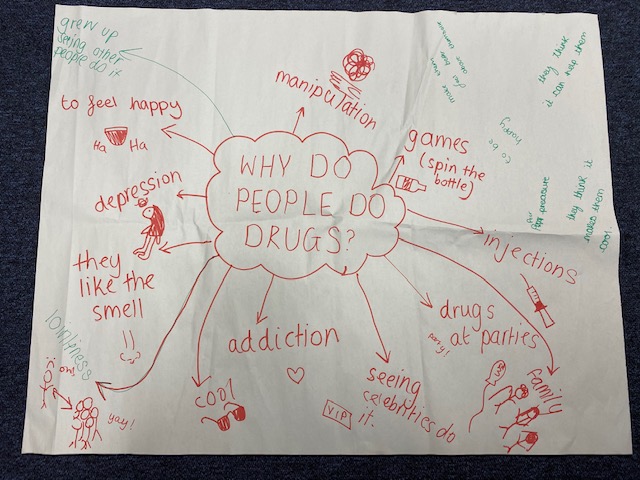 grew up
seeing other
people do it
manipulation
to feel happy
Ha
Ha
depression
they
like the
smell
lonliness
on!
yay!
cool
addiction
seeing
celebrities do
it.
VIP
family
drugs
at parties
party!
injections
games
(spin the
bottle)
WHY DO
PEOPLE DO
DRUGS?
make them
feel better about themselves
they think
it can help them
to be
peer pressure
they think it
makes them
cool.